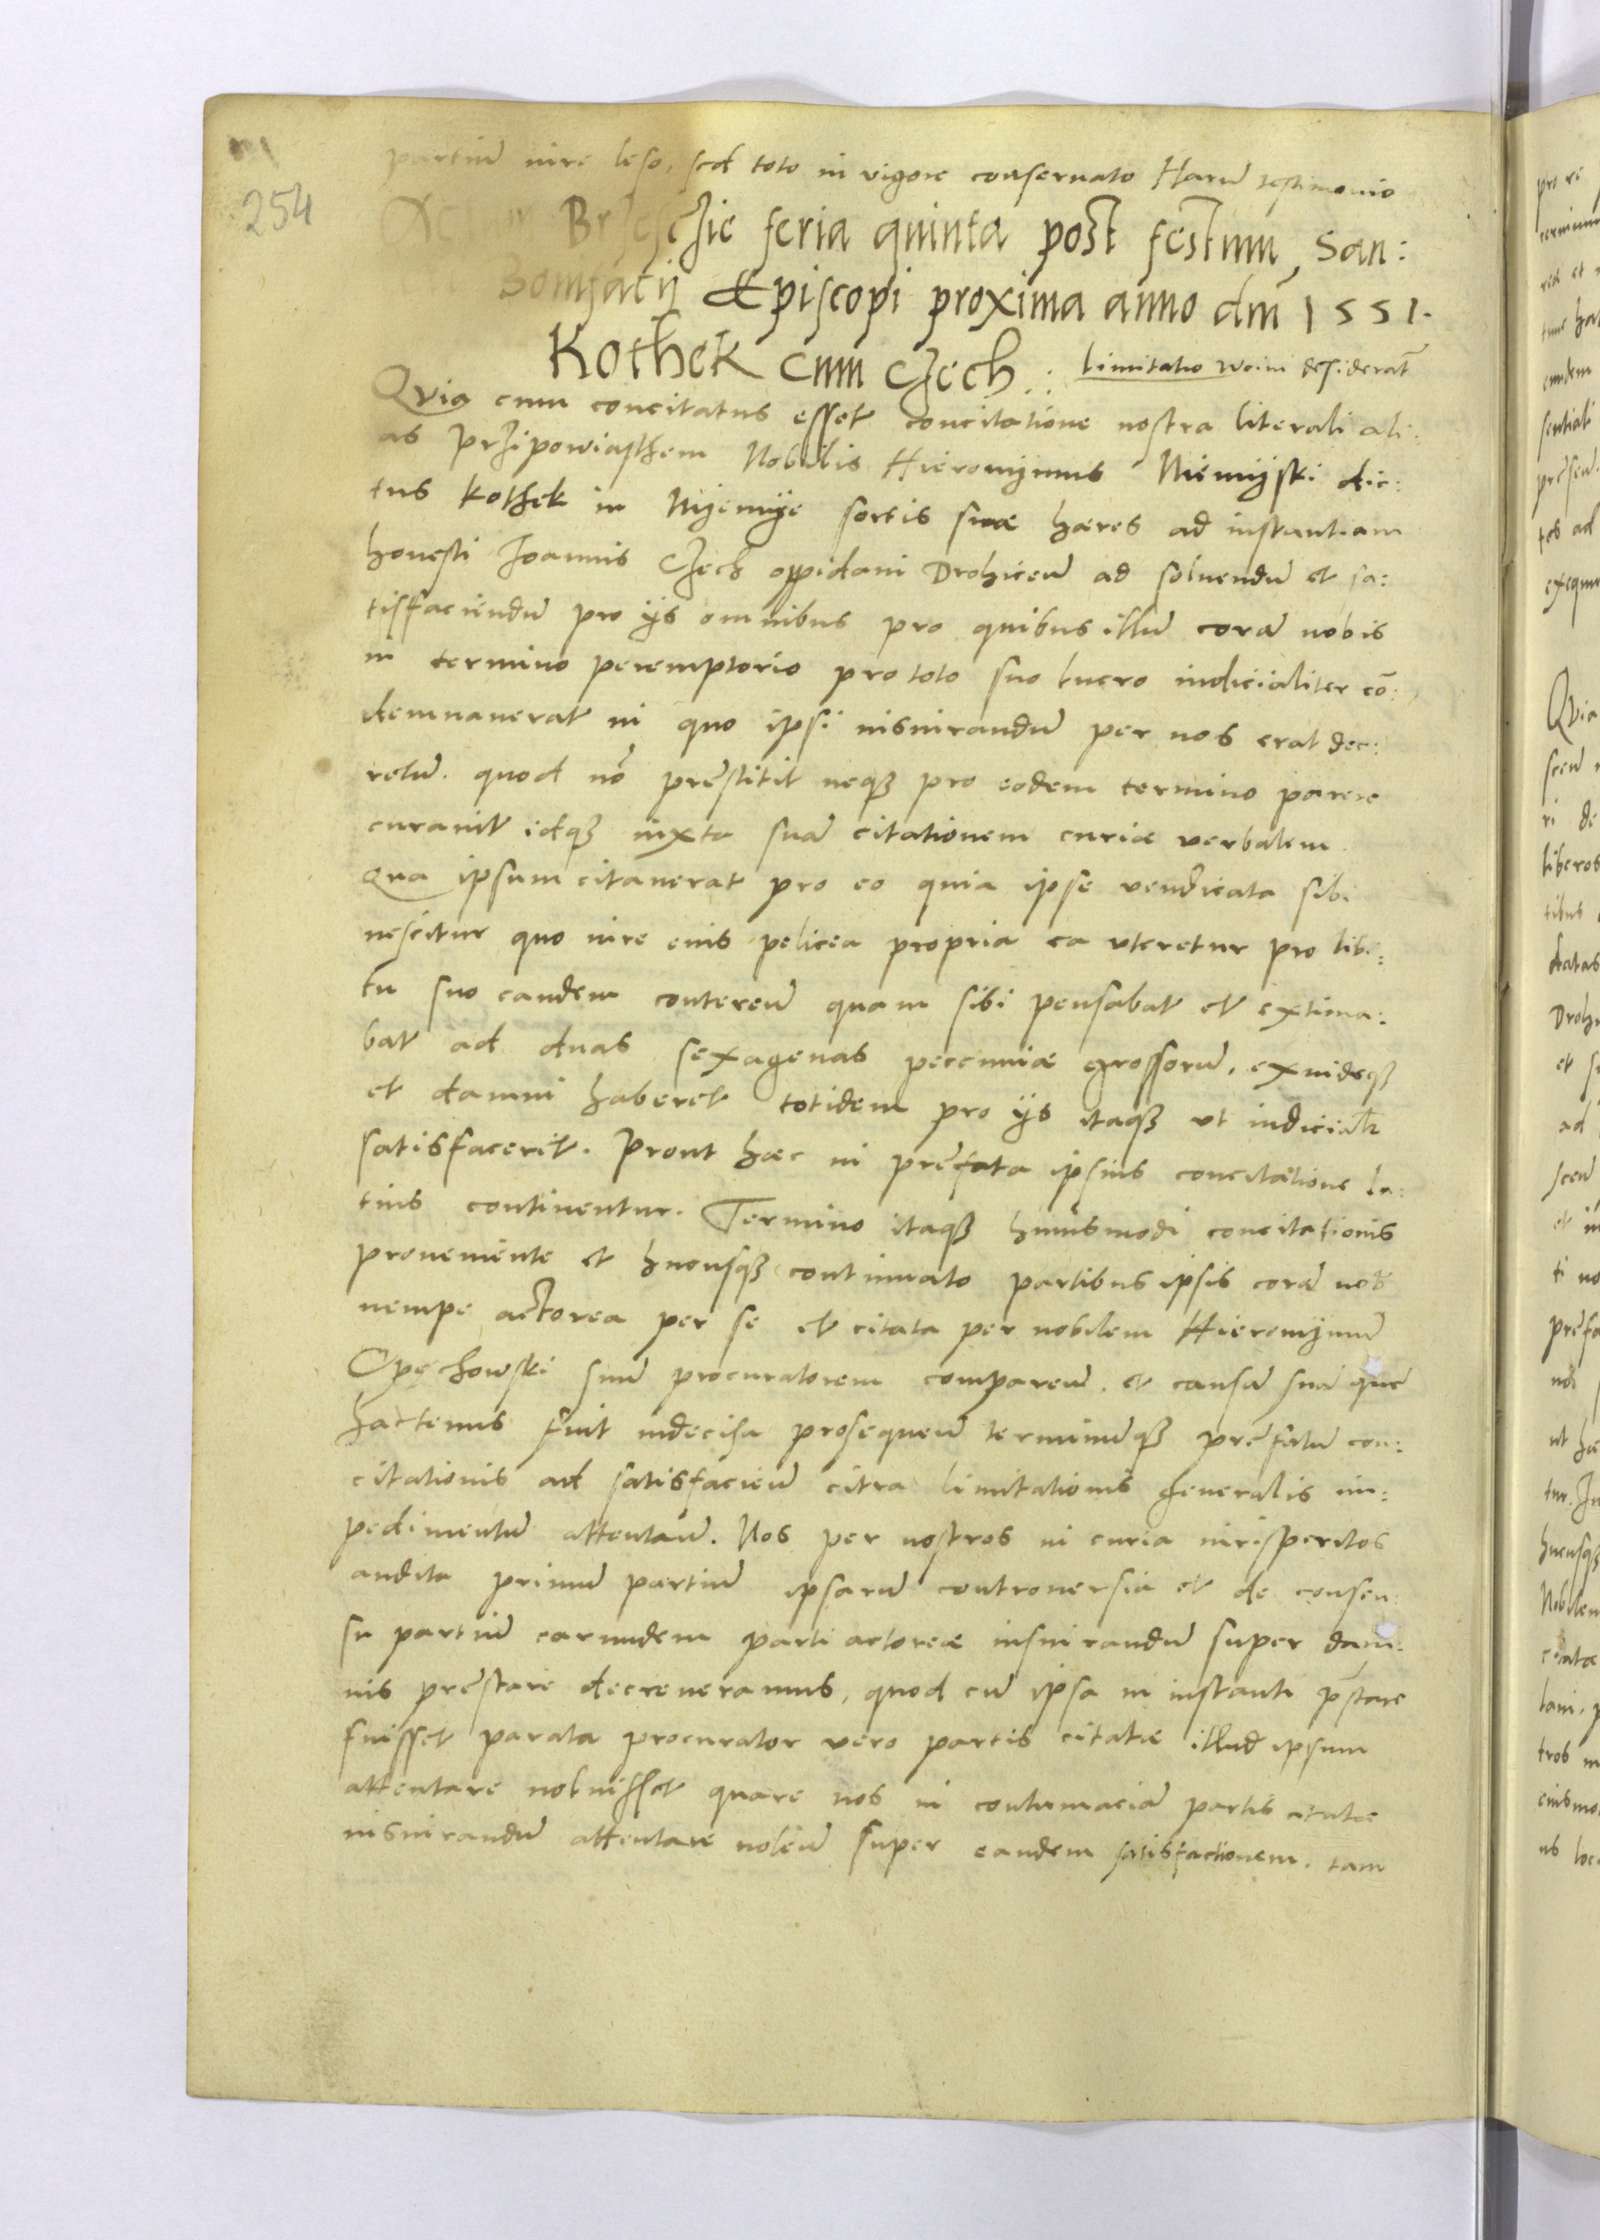 254
partiũ iure leso, sed toto in vigore conseruato Harũ testimonio
Brzesczie feria quinta post festum San:
Bonifatij Episcopi proxima anno dm̃ 1551.
Kothek cum Czech. limitatio desiderat̃
Quia cum concitatus esset concitatione nostra literali ali:
as przipowiasthem Nobilis Hieronijmus Niemijski dic:
tus Kothek in Nijemije sortis suæ hæres ad instantiam
honesti Joannis Czech oppidani Drohiceñ ad soluendũ et sa:
tisfaciendũ pro ijs omnibus pro quibus illũ corã nobis
in termino peremptorio pro toto suo lucro iudicialiter cõ:
demnauerat in quo ipsi iusiurandũ per nos erat dec:
retũ. quod nõ prestitit neqз pro eodem termino parere
curauit idqз iuxta suã citationem curiæ verbalem.
Qua ipsum citauerat pro eo quia ipse vendicata sibi
nescitur quo iure eius pelicea propria ea vteretur pro libi:
tu suo eandem contereñ quam sibi pensabat et extima:
bat ad duas sexagenas pecuniæ grossorũ, exindeqз
et damni haberet totidem pro ijs itaqз ut iudicialr
satisfacerit. Prout hæc in prefata ipsius concitatione la:
tius continentur. Termino itaqз huiusmodi concitationis
proueniente et hucusqз continuato partibus ipsis corã nob
nempe actorea per se et citata per nobilem Hieronijmũ
Opechowski suũ procuratorem compareñ. et causã suã que
hactenus fuit indecisa prosequeñ terminũqз prefatũ con:
citationis ad satisfacieñ citra limitationis generalis im:
pedimentũ attentañ. Nos per nostros in curia iurisperitos
audita primũ partiũ ipsarũ controuersia et de consen:
su partiũ earundem parti actoreæ iusiurandũ super dam:
nis prestare decreueramus, quod cũ ipsa in instanti p̃stare
fuisset parata procurator vero partis citatæ illud ipsum
attentare noluisset quare nos in contumaciã partis citatæ
iusiurandũ attentare noleñ super eandem satisfactionem. tam